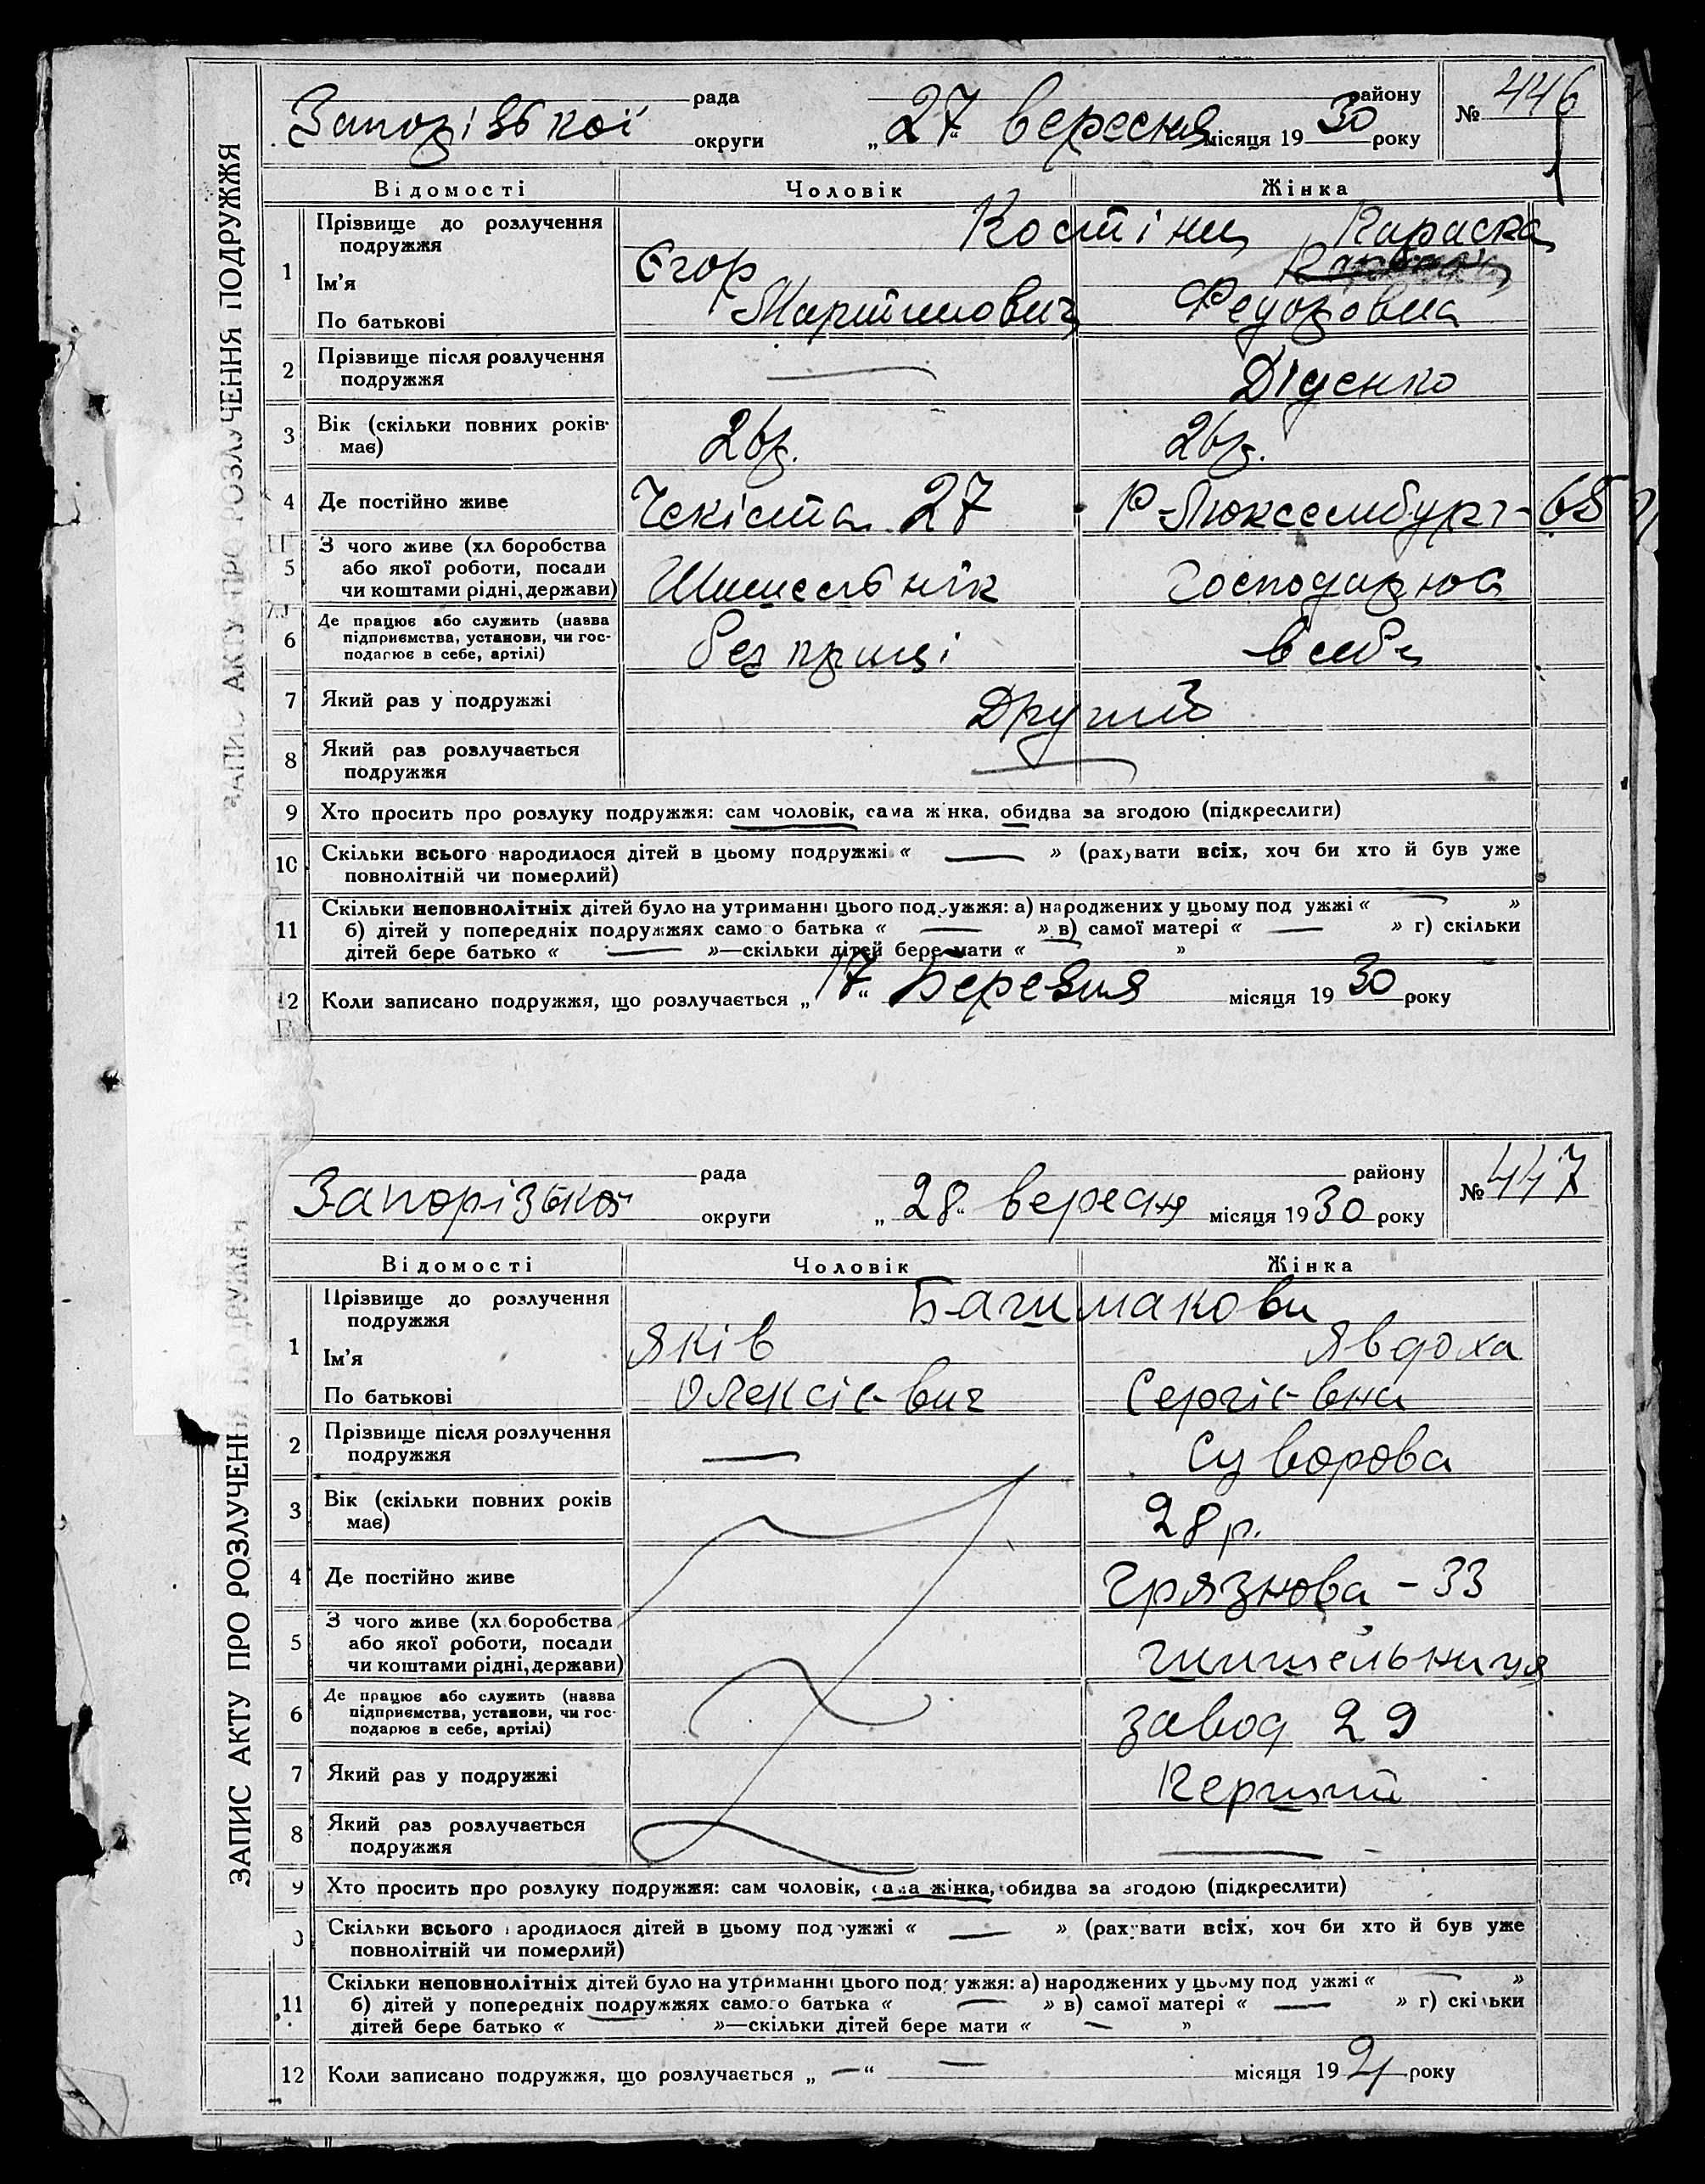 ЗАПИС АКТУ ПРО РОЗЛУЧЕННЯ ПОДРУЖЖЯ
рада району № 446
Запорізької округи „27“ вересня місяця 1930 року
Відомості Чоловік Жінка
1 Прізвище до розлучення подружжя Костіни
Ім'я Єгор Параска
По батькові Мартинович Федоровна
2 Прізвище після розлучення подружжя — Діденко
3 Вік (скільки повних років має) 26р. 26р.
4 Де постійно живе Чекіста 27 Р-Люксембург-68
5 З чого живе (хл боробства
або якої роботи, посади
чи коштами рідні, держави) Шишельнік Господарює
6 Де працює або служить (назва
підприємства, установи, чи гос-
подарює в себе, артілі) без праці в себе
7 Який раз у подружжі Другий
8 Який раз розлучається
подружжя —
9 Хто просить про розлуку подружжя: сам чоловік, сама жінка, обидва за згодою (підкреслити)
10 Скільки всього народилося дітей в цьому подружжі « — » (рахувати всіх, хоч би хто й був уже
повнолітній чи померлий)
11 Скільки неповнолітніх дітей було на утриманні цього подружжя: а) народжених у цьому подружжі « — »
б) дітей у попередніх подружжях самого батька « — » в) самої матері « — » г) скільки
дітей бере батько « — »—скільки дітей бере мати « »
12 Коли записано подружжя, що розлучається „17“ Березня місяця 1930 року
ЗАПИС АКТУ ПРО РОЗЛУЧЕННЯ ПОДРУЖЖЯ
рада району № 447
Запорізької округи „28“ вересня місяця 1930 року
Відомості Чоловік Жінка
1 Прізвище до розлучення
подружжя Башмакови
Ім'я Яків Явдоха
По батькові Олексієвич Сергієвна
2 Прізвище після розлучення
подружжя — Суворова
3 Вік (скільки повних років
має) 28р.
4 Де постійно живе Грязнова - 33
5 З чого живе (хл.боробства
або якої роботи, посади
чи коштами рідні, держави) шишельниця
6 Де працює або служить (назва
підприємства, установи, чи гос-
подарює в себе, артілі) завод 29
7 Який раз у подружжі Перший
8 Який раз розлучається
подружжя —
9 Хто просить про розлуку подружжя: сам чоловік, сама жінка, обидва за згодою (підкреслити)
10 Скільки всього народилося дітей в цьому подружжі « — » (рахувати всіх, хоч би хто й був уже
повнолітній чи померлий)
11 Скільки неповнолітніх дітей було на утриманні цього подружжя: а) народжених у цьому подружжі « — »
б) дітей у попередніх подружжях самого батька « — » в) самої матері « — » г) скільки
дітей бере батько « »—скільки дітей бере мати « — »
12 Коли записано подружжя, що розлучається „—“ — місяця 19 року